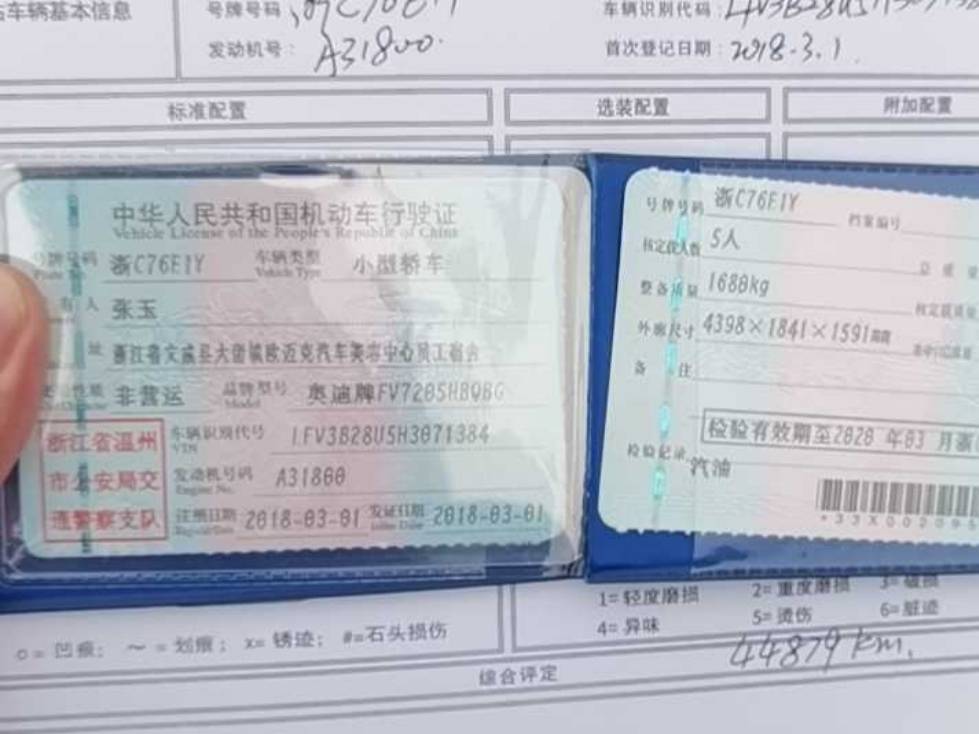 车辆基本信息
号牌号码
车辆识别代码:
发动机号: A31800
首次登记日期: 2018.3.1
标准配置 选装配置 附加配置
中华人民共和国机动车行驶证
Vehicle License of the People's Republic of China
号牌号码 浙C76E1Y 车辆类型 小型轿车
Vehicle Type
有人 张玉
址 浙江省文成县大峃镇欧迈克汽车美容中心员工宿舍
性质 非营运 品牌型号 奥迪牌FV7205HBQBG
Model
车辆识别代号 LFV3B28U5H3071384
VIN
发动机号码 A31800
Engine No.
注册日期 2018-03-01 发证日期 2018-03-01
浙江省温州
市公安局交
通警察支队
号牌号码 浙C76E1Y 档案编号
核定载人数 5人
整备质量 1680kg
外廓尺寸 4398×1841×1591mm
备注
检验有效期至2020年03月
检验记录 汽油
1=轻度磨损 2=重度磨损 3=破损
4=异味 5=烫伤 6=脏迹
○=凹痕; ~=划痕; x=锈迹; #=石头损伤
44879 km.
综合评定